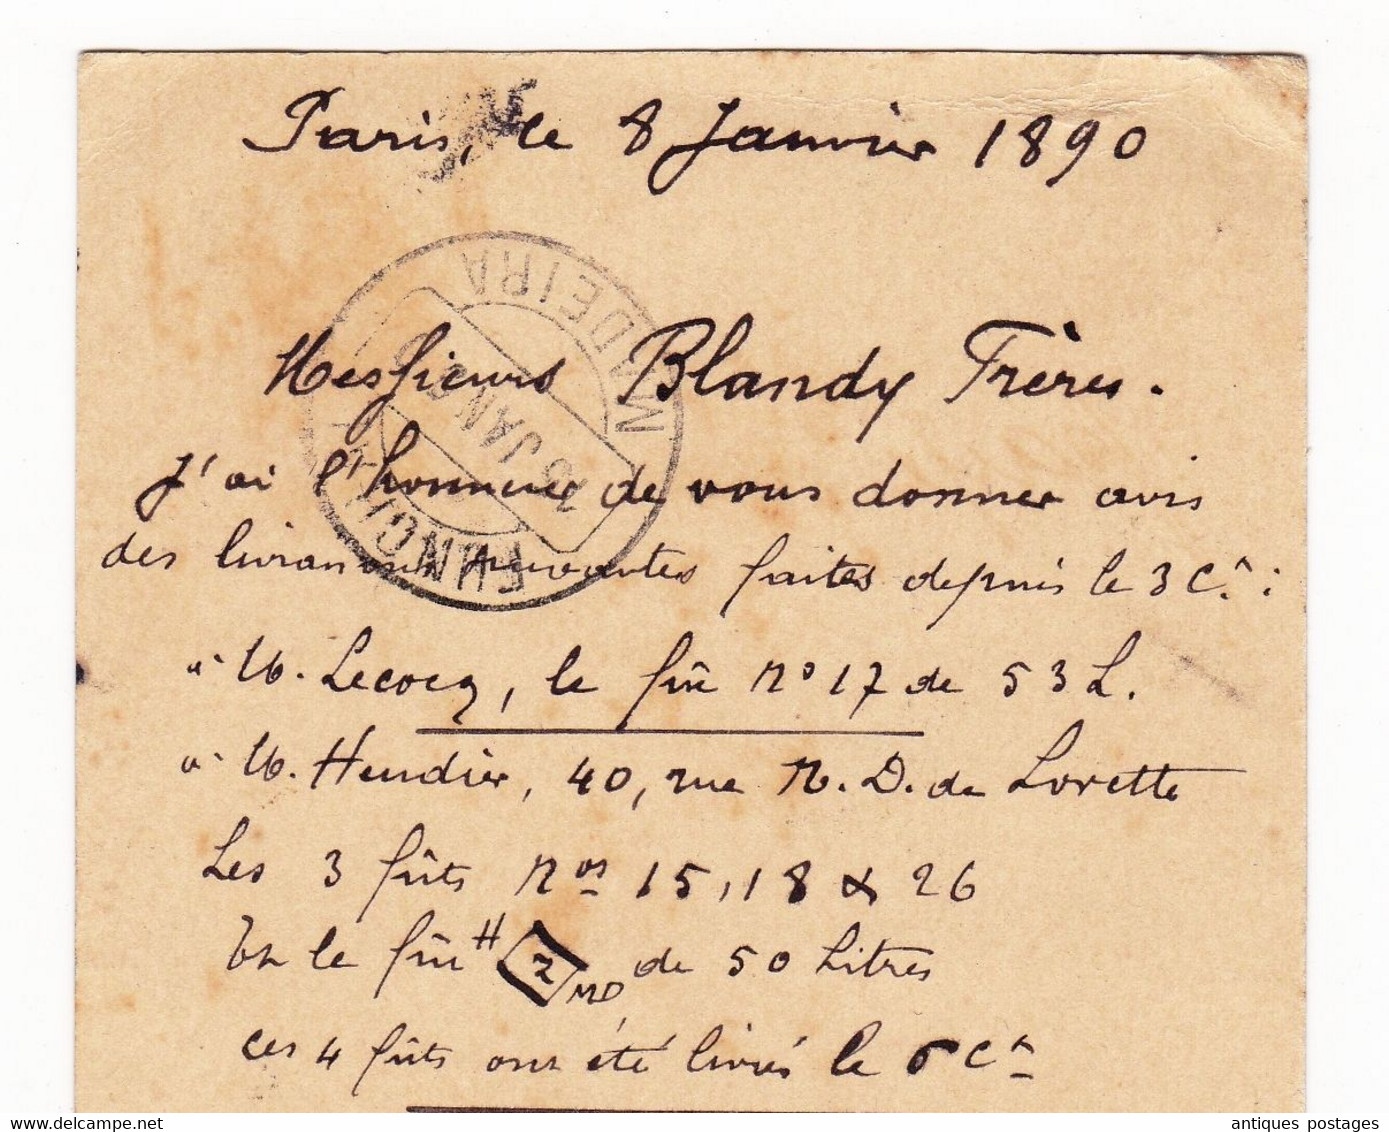 Paris, le 8 Janvier 1890
MADEIRA
Messieurs Blandy Frères.
JAN
FUNCHAL
J'ai l'honneur de vous donner avis
des livraisons suivantes faites depuis le 3 Ct :
à M. Lecocq, le fût No 17 de 53 L.
à M. Heudier, 40, rue N. D. de Lorette
Les 3 fûts Nos 15, 18 & 26
Et le fût H 2 MD, de 50 Litres
ces 4 fûts ont été livrés le 6 Ct
antiques postages